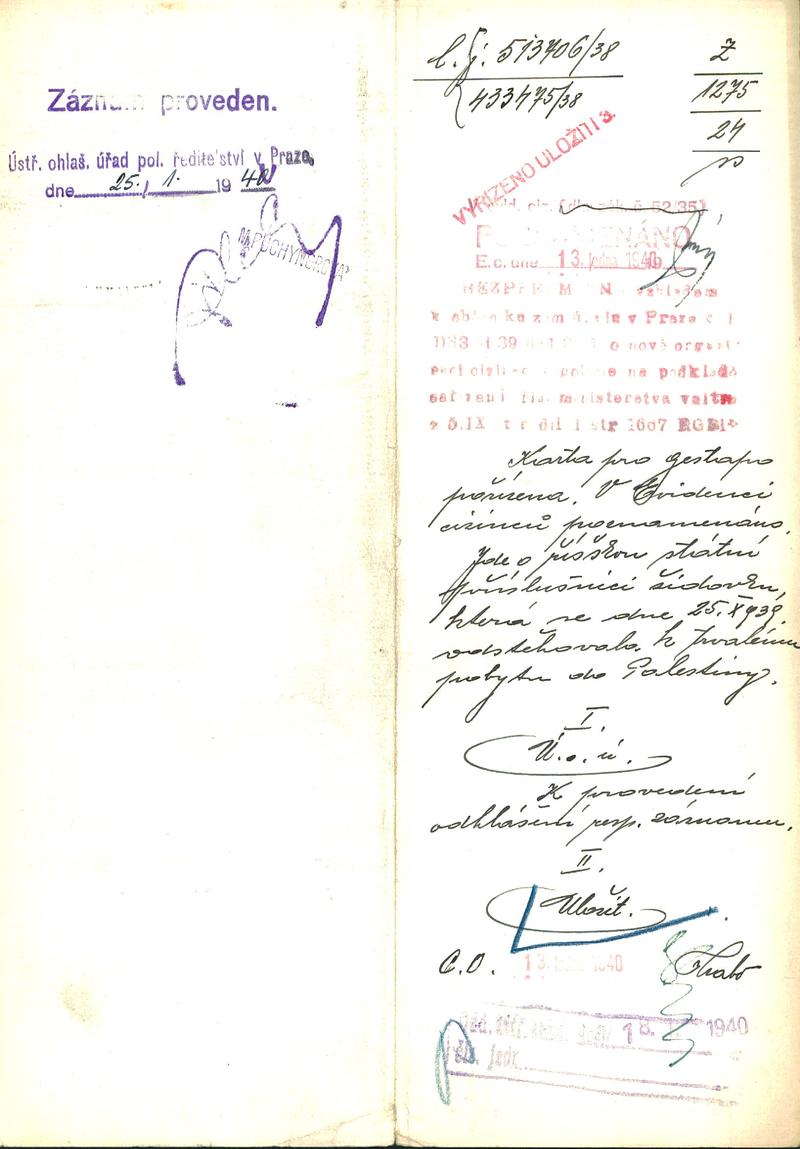 Záznam proveden.
Ústř. ohlaš. úřad pol. ředitelství v Praze,
dne 25./1. 1940
M. PUCHÝNEROVÁ
č. j. 513706/38
433475/38
Z
1275
24
VYŘÍZENO ULOŽITI
zák. č 52/35
POZNAMENÁNO
E. c. dne 13. ledna 1940
vzhledem
k v Praze č j
39 o nové
na podkladě
ministerstva
z 5.IX díl I str 1667 RGBl
Karta pro gestapo
pořízena. V Evidenci
cizinců poznamenáno.
Jde o říšskou státní
příslušnici židovku,
která se dne 25.X 939
odstěhovala k trvalému
pobytu do Palestiny.
I.
Ú. o. ú.
K provedení
odhlášení resp. záznamu.
II.
Uložit.
C.O. 13. 1940
18. 1940
čís. jedn.